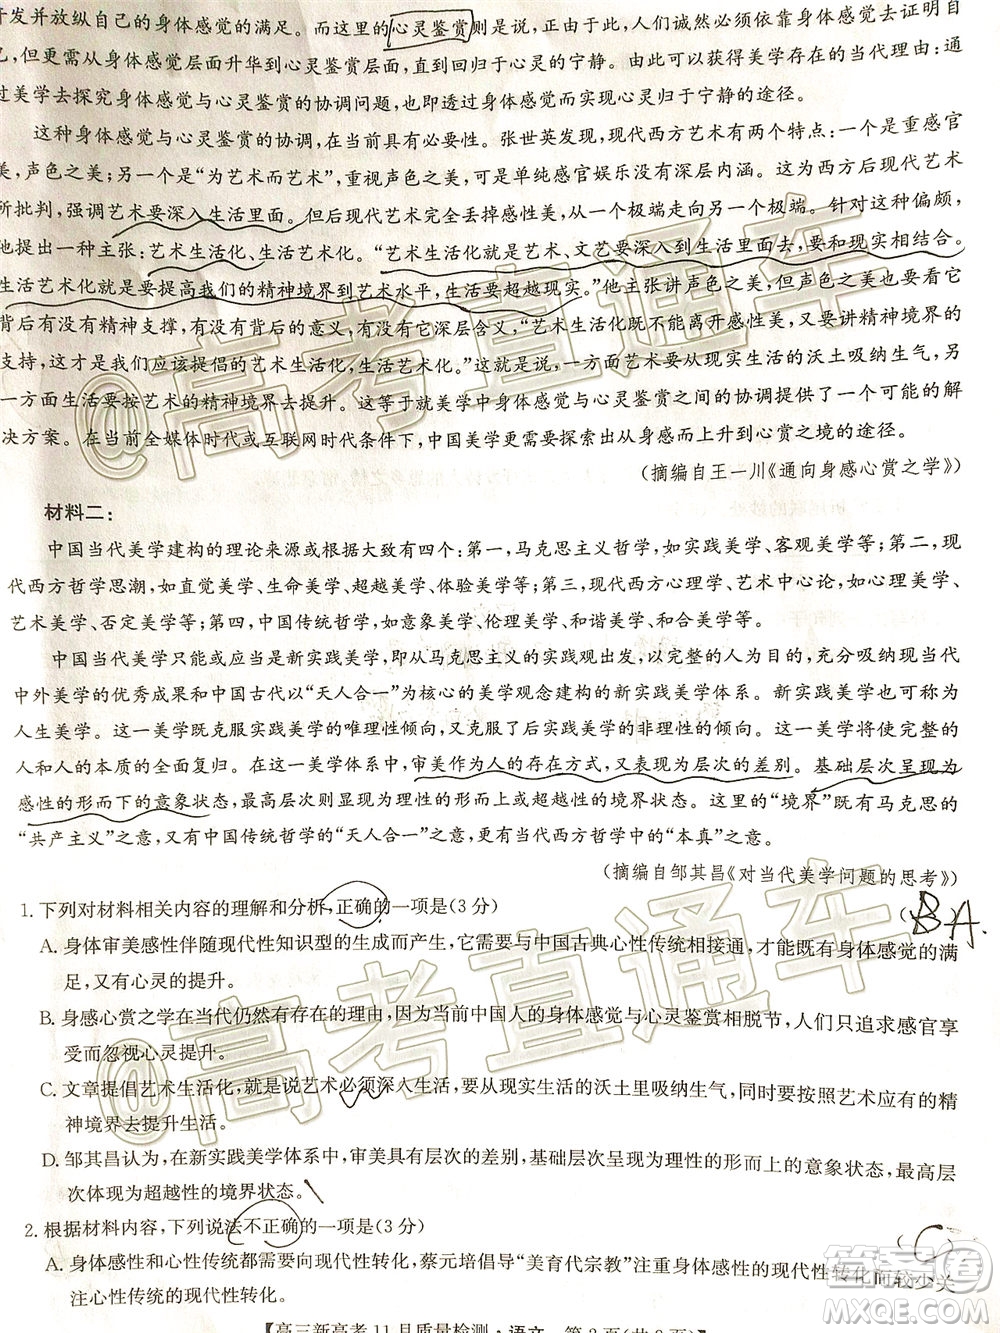 开发并放纵自己的身体感觉的满足。而这里的心灵鉴赏则是说,人们诚然会依靠身体感觉去证明自
己,但却要从身体感觉层面升华到心灵鉴赏层面,回归于心灵的宁静。由此可以获得美学存在的当代理由:通
过美学去探究身体感觉与心灵鉴赏的协调问题,也就是探究如何实现心灵归于宁静的途径。
这种身体感觉与心灵鉴赏的协调,在当前具有必要性。张世英发现,现代西方艺术有两个特点:一是重感官
美,声色之美;另一个是“为艺术而艺术”,重视声色之美,可是单纯感官娱乐没有深层内涵。这为西方后现代艺术
所批判,强调艺术要深入生活里面。但后现代艺术完全丢掉感性美,从一个极端走向另一个极端。针对这种偏颇,
他提出一种主张:艺术生活化、生活艺术化。“艺术生活化就是艺术、文艺要深入到生活里面去,要和现实相结合。
生活艺术化就是要提高我们的精神境界到艺术水平,生活要超越现实。”他主张讲声色之美,但要看声色之美的
背后有没有精神支撑,有没有背后的意义,有没有它深层含义,“艺术生活化不能离开感性美,又要讲精神境界的
支持,这才是我们应该提倡的艺术生活化,生活艺术化。”这就是说,一方面艺术要从现实生活的沃土吸纳生气,另
一方面生活要按艺术的精神境界去提升。这等于就美学中身体感觉与心灵鉴赏之间的协调,给出了自己的解
决方案。在当前全媒体时代或互联网时代条件下,中国美学更需要探索出从身感而上升到心赏之境的途径。
(摘编自王一川《通向身感心赏之学》)
材料二:
中国当代美学建构的理论来源或根据大致有四个:第一,马克思主义哲学,如实践美学、客观美学等;第二,现
代西方哲学思潮,如直觉美学、生命美学、超越美学、体验美学等;第三,现代西方心理学、艺术中心论,如心理美学、
艺术美学、否定美学等;第四,中国传统哲学,如意象美学、伦理美学、和谐美学、和合美学等。
中国当代美学只能或应当是新实践美学,即从马克思主义的实践观出发,以完整的人为目的,充分吸纳当代
中外美学的优秀成果和中国古代以“天人合一”为核心的美学观念建构的新实践美学体系。新实践美学可称为
人生美学。这一美学既克服实践美学的唯理性倾向,又克服了后实践美学的非理性的倾向。这应使完整的
人和人的本质的全面复归。在这一美学体系中,审美作为人的存在方式,又表现为层次的差别。基础层次呈现为
感性的形而下的意象状态,最高层次则显现为理性的形而上或超越性的境界状态。这里的“境界”既有马克思的
“共产主义”之意,又有中国传统哲学的“天人合一”之意,更有当代西方哲学中的“本真”之意。
(摘编自邹其昌《对当代美学问题的思考》)
1. 下列对材料相关内容的理解和分析,正确的一项是(3分)
( B A.
A. 身体审美感性伴随现代性知识型的生成而产生,它需要与中国古典心性传统相接通,才能既有身体感觉的满
足,又有心灵的提升。
B. 身感心赏之学在当代仍然有存在的理由,因为当前中国人的身体感觉与心灵鉴赏相脱节,人们只追求感官享
受而忽视心灵提升。
C. 文章提倡艺术生活化,就是指艺术必须深入生活,要从现实生活的沃土里吸纳生气,同时要按照艺术的精神
境界去提升生活。
D. 邹其昌认为,在新实践美学体系中,审美具有层次的差别,基础层次体现为理性的形而上的意象状态,最高层
次体现为超越性的境界状态。
2. 根据材料内容,下列说法不正确的一项是(3分)
( C
A. 身体感性和心性传统都需要向现代性转化,蔡元培倡导“美育代宗教”更重视身体感性的现代性转化而较少关
注心性传统的现代性转化。
【高三新高考11月质量检测·语文 第2页(共8页)】
@高考直通车
@高考直通车
答案圈
MXQE.COM